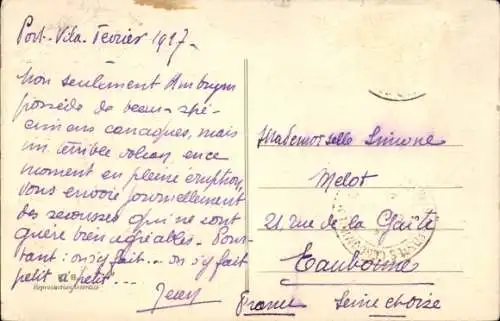 Port-Vila. Février 1927-
Non seulement Ambrym
possède de beaux spé-
cimens canaques, mais
un terrible volcan, en ce
moment en pleine éruption,
vous envoie journellement
des secousses qui ne sont
guère bien agréables. Pour-
tant : on s'y fait... on s'y fait
petit à petit...
Jean
Mademoiselle Simone
Melot
21, rue de la Gaité
Eaubonne
France Seine et oise